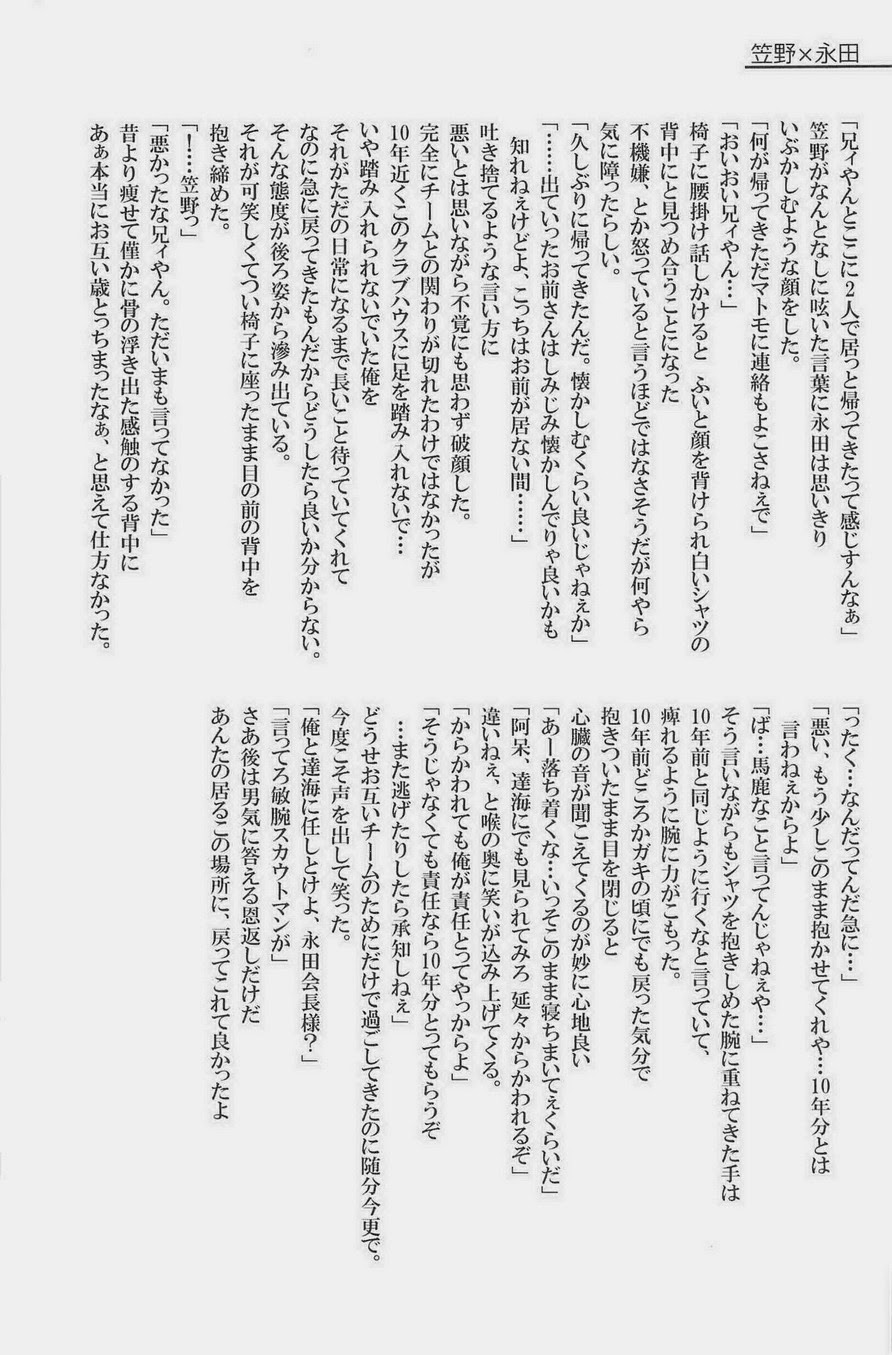 笠野×永田
「兄ィやんとここに2人で居っと帰ってきたって感じすんなぁ」
笠野がなんとなしに呟いた言葉に永田は思いきり
いぶかしむような顔をした。
「何が帰ってきただマトモに連絡もよこさねぇで」
「おいおい兄ィやん…」
椅子に腰掛け話しかけると　ふいと顔を背けられ白いシャツの
背中にと見つめ合うことになった
不機嫌、とか怒っていると言うほどではなさそうだが何やら
気に障ったらしい。
「久しぶりに帰ってきたんだ。懐かしむくらい良いじゃねぇか」
「……出ていったお前さんはしみじみ懐かしんでりゃ良いかも
知れねぇけどよ、こっちはお前が居ない間……」
吐き捨てるような言い方に
悪いとは思いながら不覚にも思わず破顔した。
完全にチームとの関わりが切れたわけではなかったが
10年近くこのクラブハウスに足を踏み入れないで…
いや踏み入れられないでいた俺を
それがただの日常になるまで長いこと待っていてくれて
なのに急に戻ってきたもんだからどうしたら良いか分からない。
そんな態度が後ろ姿から滲み出ている。
それが可笑しくてつい椅子に座ったまま目の前の背中を
抱き締めた。
「！……笠野っ」
「悪かったな兄ィやん。ただいまも言ってなかった」
昔より痩せて僅かに骨の浮き出た感触のする背中に
あぁ本当にお互い歳とっちまったなぁ、と思えて仕方なかった。
「ったく…なんだってんだ急に…」
「悪い、もう少しこのまま抱かせてくれや…10年分とは
言わねぇからよ」
「ば…馬鹿なこと言ってんじゃねぇや…」
そう言いながらもシャツを抱きしめた腕に重ねてきた手は
10年前と同じように行くなと言っていて、
痺れるように腕に力がこもった。
10年前どころかガキの頃にでも戻った気分で
抱きついたまま目を閉じると
心臓の音が聞こえてくるのが妙に心地良い
「あー落ち着くな…いっそこのまま寝ちまいてぇくらいだ」
「阿呆、達海にでも見られてみろ 延々からかわれるぞ」
違いねぇ、と喉の奥に笑いが込み上げてくる。
「からかわれても俺が責任とってやっからよ」
「そうじゃなくても責任なら10年分とってもらうぞ
…また逃げたりしたら承知しねぇ」
どうせお互いチームのためにだけで過ごしてきたのに随分今更で。
今度こそ声を出して笑った。
「俺と達海に任しとけよ、永田会長様？」
「言ってろ敏腕スカウトマンが」
さあ後は男気に答える恩返しだけだ
あんたの居るこの場所に、戻ってこれて良かったよ